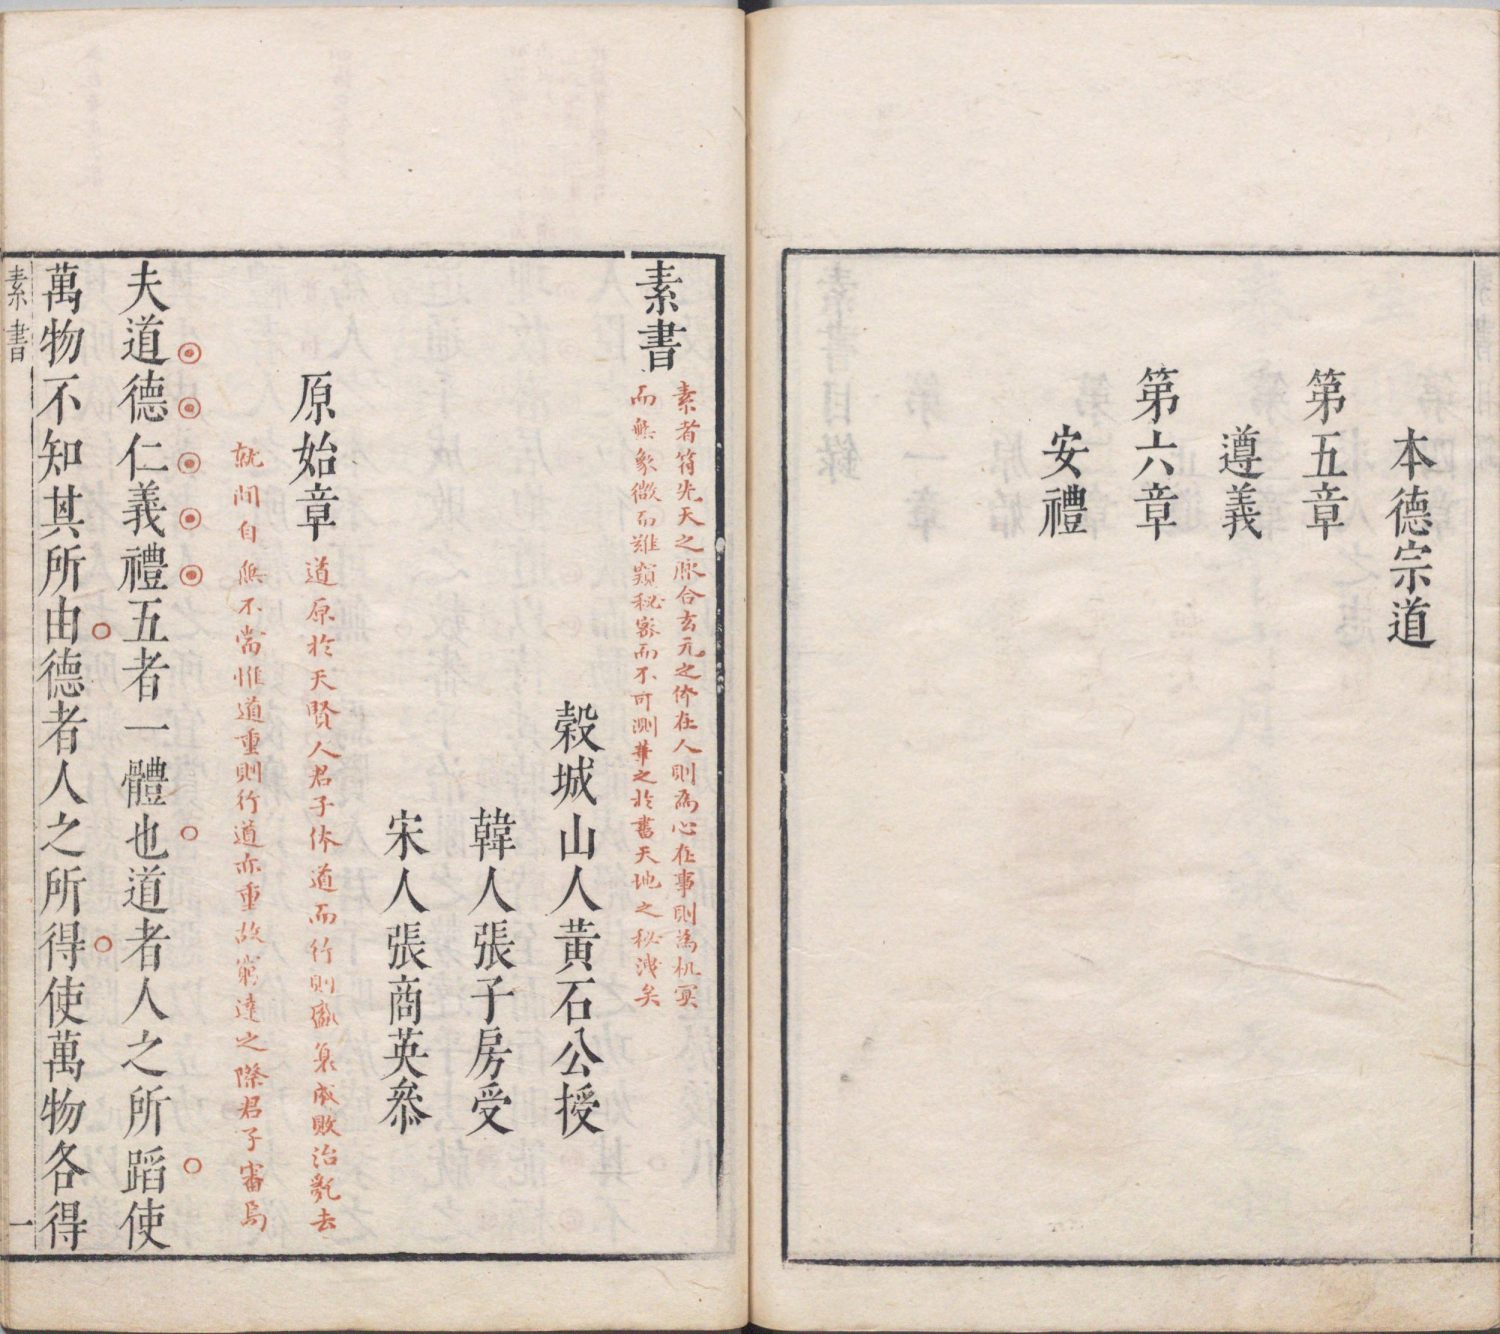 本德宗道
第五章
遵義
第六章
安禮
素書
素者符先天之脈合玄元之体在人則為心在事則為机冥
而無象微而難窺秘密而不可測華之於書天地之秘洩矣
穀城山人黃石公授
韓人張子房受
宋人張商英叅
原始章
道原於天賢人君子体道而行則盛衰成敗治亂去
就間自無不當惟道重則行道亦重故窮達之際君子審焉
夫道德仁義禮五者一體也道者人之所蹈使
萬物不知其所由德者人之所得使萬物各得
素書
一